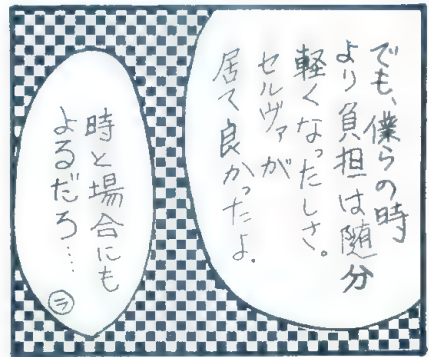 でも、僕らの時
より負担は随分
軽くなったしさ。
セルヴァが
居て良かったよ.
時と場合にも
よるだろ…
ラ